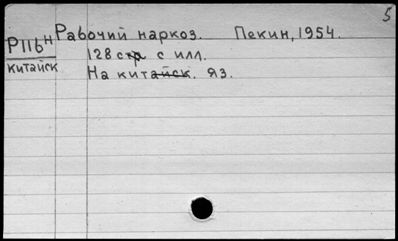 5
Р11б Н Рабочий наркоз. Пекин, 1954.
китайск 128 стр с илл.
На китайск. яз.